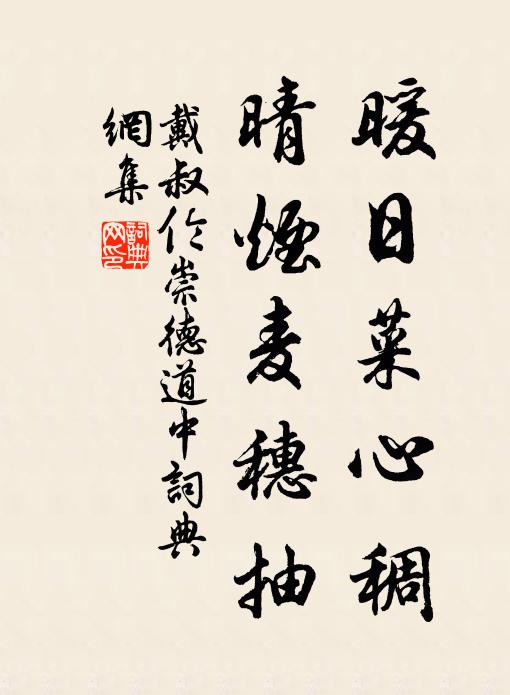 暖日菜心稠
晴煙麦穗抽
戴叔伦崇德道中詞典
網集
詞典网印